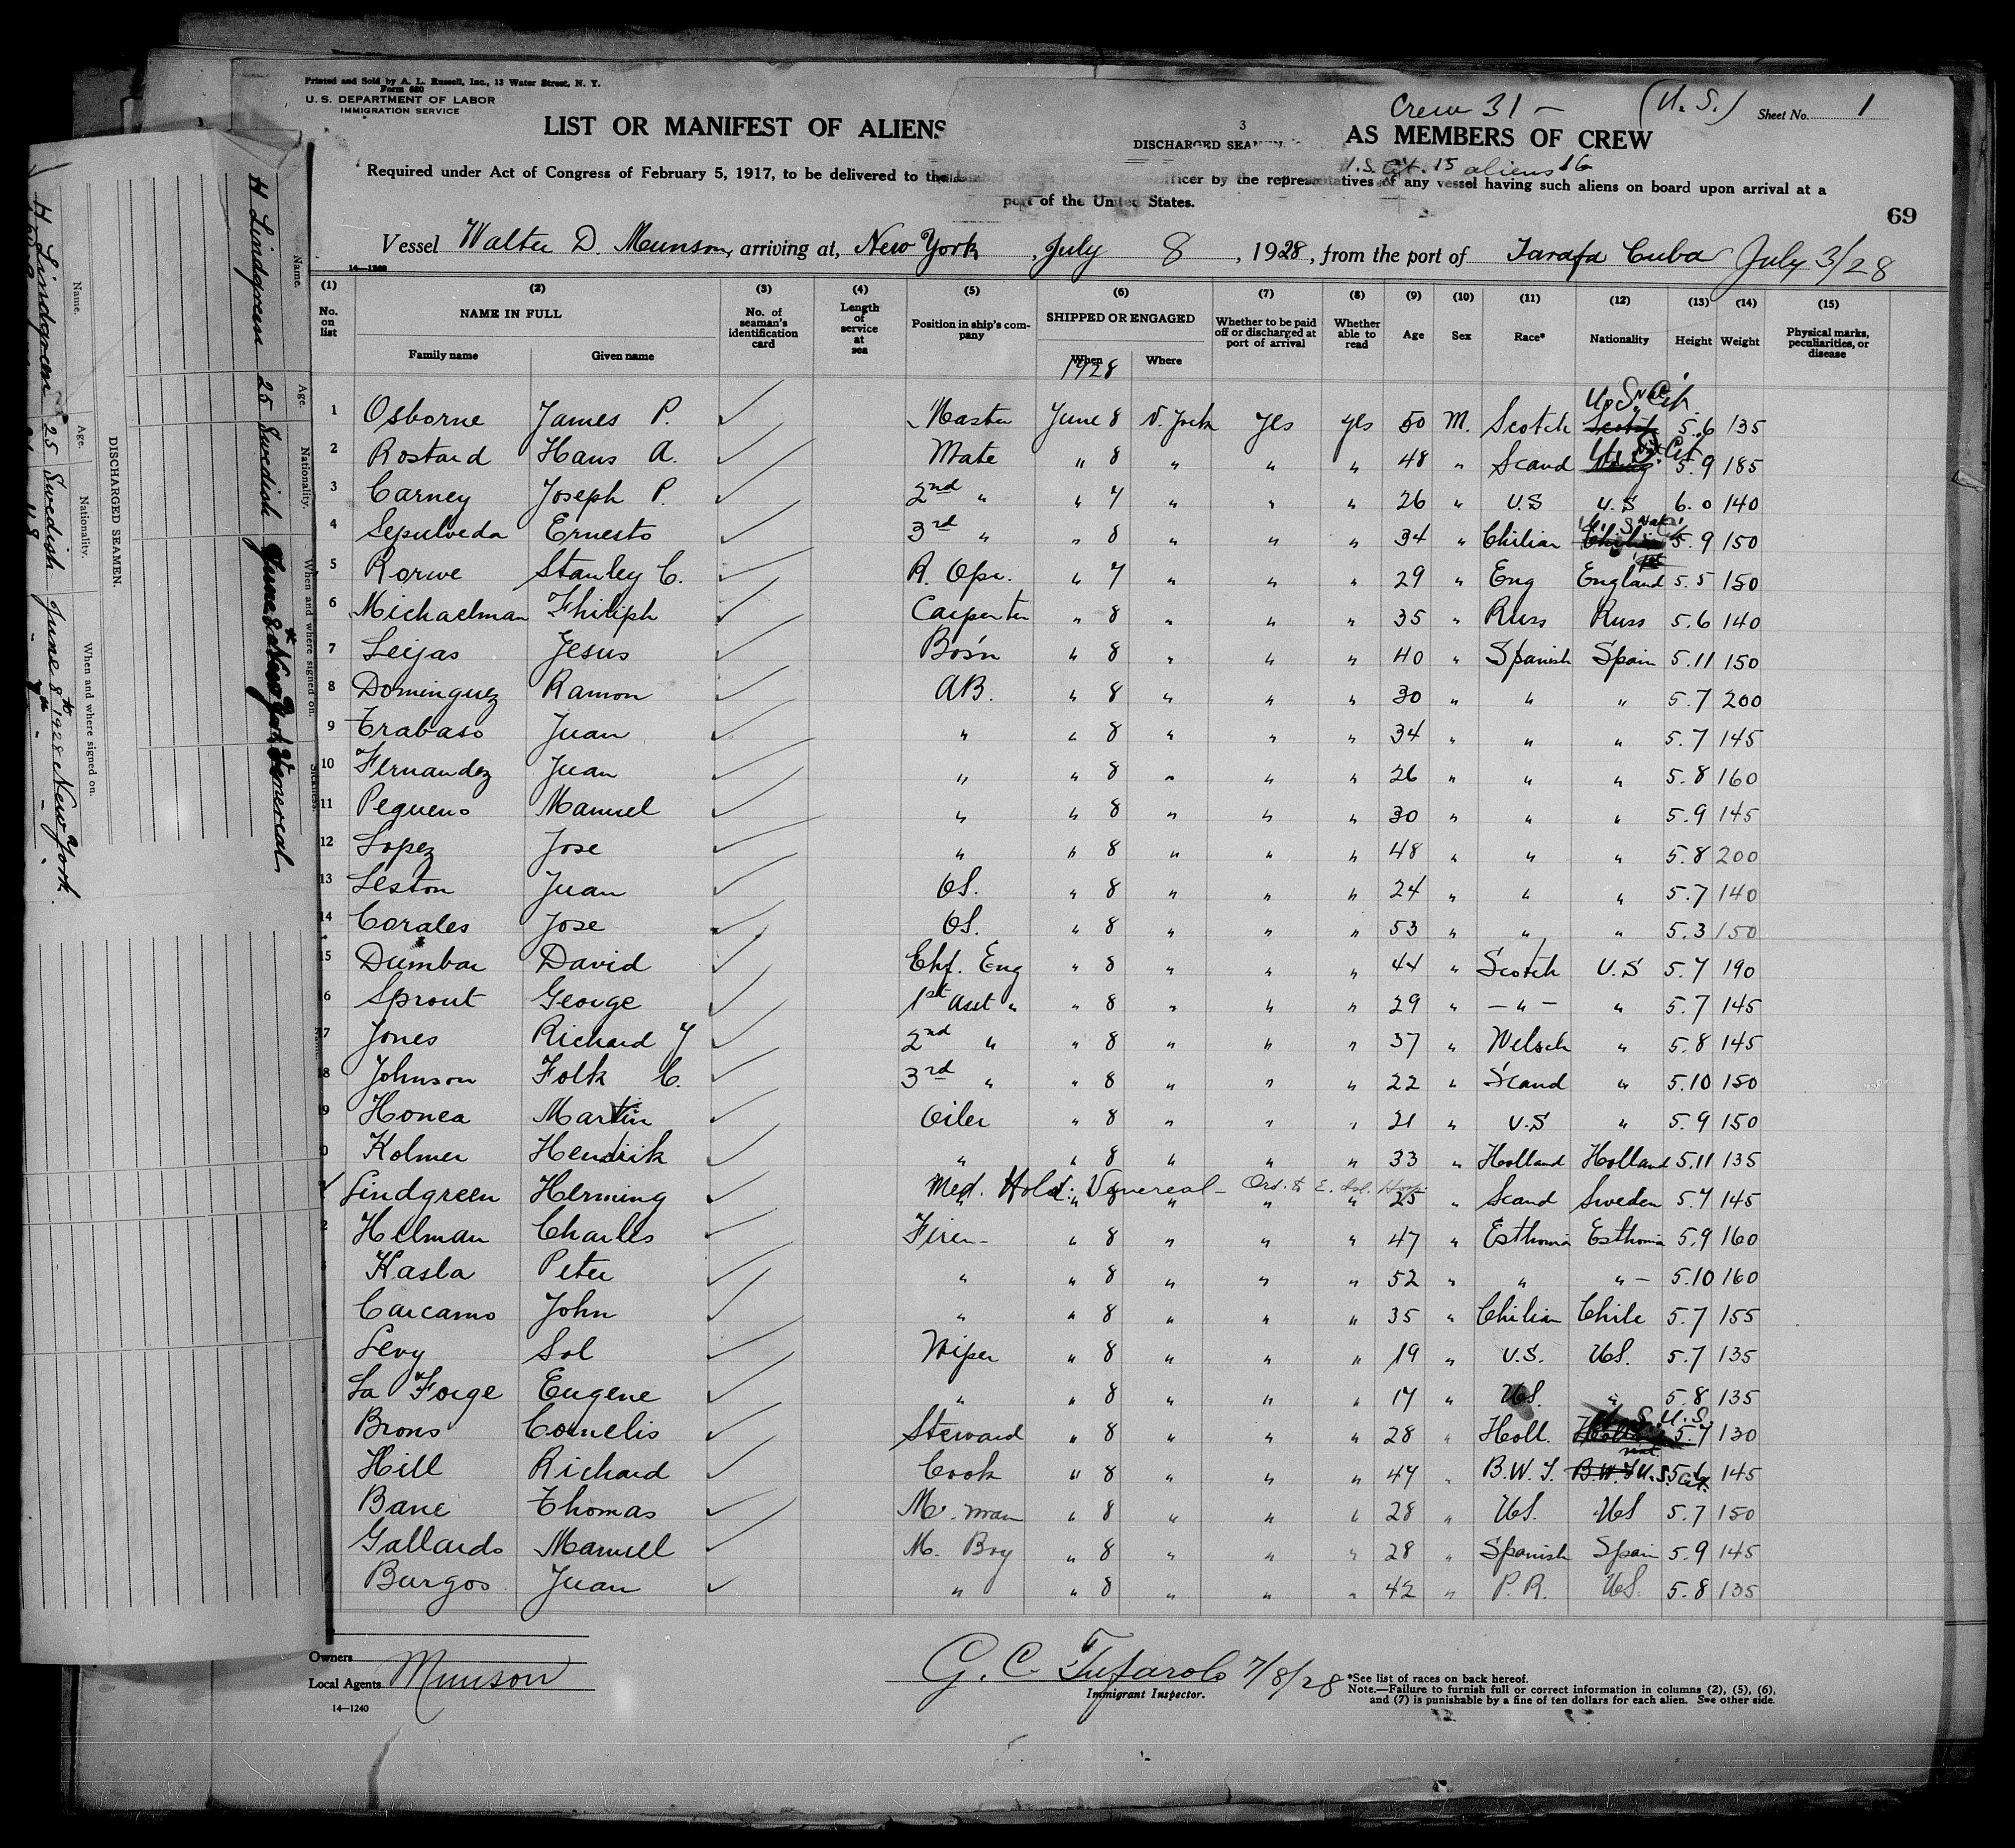 Printed and Sold by A. L. Russell, Inc., 13 Water Street, N. Y.
Form 680
U. S. DEPARTMENT OF LABOR
IMMIGRATION SERVICE
Crew 31 — (U. S.) Sheet No. 1
LIST OR MANIFEST OF ALIENS AS MEMBERS OF CREW
3
DISCHARGED SEAMEN
U.S. Cit. 15 aliens 16
Required under Act of Congress of February 5, 1917, to be delivered to the officer by the representatives of any vessel having such aliens on board upon arrival at a
port of the United States.
69
Vessel Walter D. Munson, arriving at, New York, July 8, 1928, from the port of Tarafa Cuba July 3/28
14—1240
(1) (2) (3) (4) (5) (6) (7) (8) (9) (10) (11) (12) (13) (14) (15)
No. on list NAME IN FULL No. of seaman's identification card Length of service at sea Position in ship's company SHIPPED OR ENGAGED Whether to be paid off or discharged at port of arrival Whether able to read Age Sex Race* Nationality Height Weight Physical marks, peculiarities, or disease
Family name Given name When Where
1928
1 Osborne James P. Master June 8 N. York Yes yes 50 M. Scotch U.S. Nat. Cit. 5.6 135
2 Rostard Hans A. Mate " 8 " " " 48 " Scand U.S. Cit. 5.9 185
3 Carney Joseph P. 2nd " " 7 " " " 26 " U.S U.S 6.0 140
4 Sepulveda Ernesto 3rd " " 8 " " " 34 " Chilian U.S. Nat. 5.9 150
5 Rorwe Stanley C. R. Opr. " 7 " " " 29 " Eng England 5.5 150
6 Michaelman Philiph Carpenter " 8 " " " 35 " Russ Russ 5.6 140
7 Leijas Jesus Bosn " 8 " " " 40 " Spanish Spain 5.11 150
8 Dominguez Ramon AB. " 8 " " " 30 " " " 5.7 200
9 Trabaso Juan " " 8 " " " 34 " " " 5.7 145
10 Fernandez Juan " " 8 " " " 26 " " " 5.8 160
11 Pequeno Manuel " " 8 " " " 30 " " " 5.9 145
12 Lopez Jose " " 8 " " " 48 " " " 5.8 200
13 Leston Juan OS. " 8 " " " 24 " " " 5.7 140
14 Corales Jose OS. " 8 " " " 53 " " " 5.3 150
15 Dumbar David Chf. Eng " 8 " " " 44 " Scotch U.S 5.7 190
6 Sprout George 1st Asst " " 8 " " " 29 " — " — " 5.7 145
7 Jones Richard Y 2nd " " 8 " " " 37 " Welsch " 5.8 145
8 Johnson Folk C. 3rd " " 8 " " " 22 " Scand " 5.10 150
9 Honea Martin Oiler " 8 " " " 21 " U.S " 5.9 150
0 Kolmer Hendrik " " 8 " " " 33 " Holland Holland 5.11 135
Lindgreen Herming Med. Hold: Venereal — Ord. to E. Isl. Hosp. " 8 " " " 25 " Scand Sweden 5.7 145
2 Helman Charles Firem— " 8 " " " 47 " Esthonia Esthonia 5.9 160
Kasla Peter " " 8 " " " 52 " " " — 5.10 160
Carcamo John " " 8 " " " 35 " Chilian Chile 5.7 155
Levy Sol Wiper " 8 " " " 19 " U.S. US. 5.7 135
La Forge Eugene " " 8 " " " 17 " US. " 5.8 135
Brons Cornelis Steward " 8 " " " 28 " Holl. U.S. 5.7 130
Hill Richard Cook " 8 " " " 47 " B.W.I. B.W.I U.S. Cit. nat 5.6 145
Bane Thomas M. man " 8 " " " 28 " US. US 5.7 150
Gallardo Manuel M. Boy " 8 " " " 28 " Spanish Spain 5.9 145
Burgos Juan " " 8 " " " 42 " P.R. US. 5.8 135
Owners
Local Agents Munson
14—1240
G. C. Tufarolo 7/8/28
Immigrant Inspector.
*See list of races on back hereof.
Note.—Failure to furnish full or correct information in columns (2), (5), (6),
and (7) is punishable by a fine of ten dollars for each alien. See other side.
DISCHARGED SEAMEN.
Name. Age. Nationality. When and where signed on.
H. Lindgreen 25 Swedish June 8th 1928 New York.
Name. Age. Nationality. When and where signed on. Sickness.
H Lindgreen 25 Swedish June 8th New York Venereal